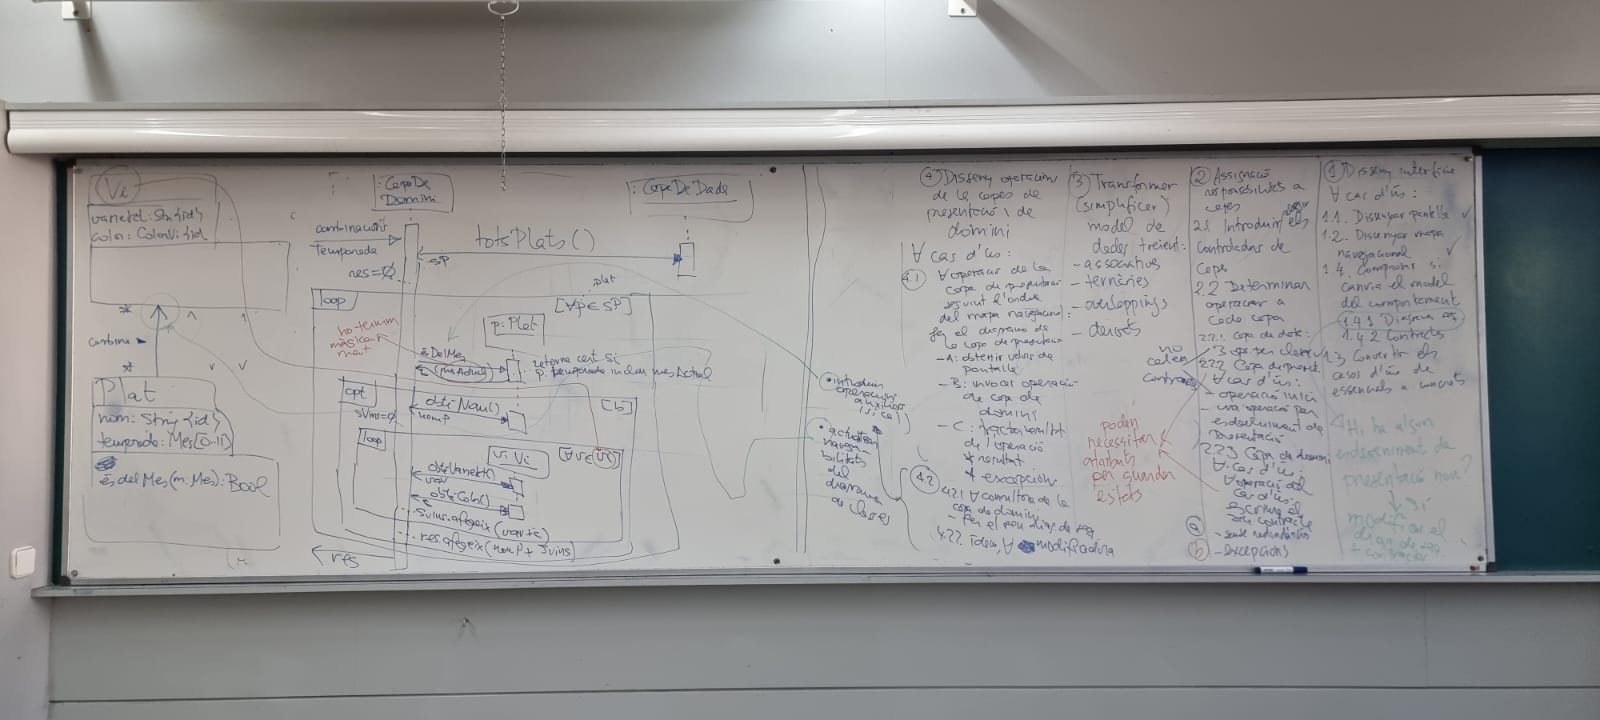 Vi
varietat: String {id}
color: ColorVi {id}
*
combina
*
Plat
nom: String {id}
temporada: Mes [0..11]
és del Mes (m: Mes): Bool
: Capa De
Domini
: Capa De Dades
combinacions
Temporada
res = ∅
tots Plats ()
sP
loop
plat
[∀p ∈ sP]
p: Plat
és Del Mes
(mesActual)
retorna cert si
p. temporada inclou mes Actual
opt
[b]
obté Nom ()
nomP
sVins = ∅
loop
vi: Vi
obté Varietat ()
var
obté Color ()
sVins. afegeix (var + c)
res. afegeix (nomP + sVins)
res
• introduir
operacions
auxiliars
•
navega-
bilitats
del
diagrama
de classes
④ Disseny operacions
de les capes de
presentació i de
domini
∀ cas d'ús:
4.1
∀ operació de la
capa de presentació
seguint l'ordre
del mapa navegacional:
fer el diagrama de
la capa de presentació
- A: obtenir valors de
pantalla
- B: invocar operació
de capa de
domini
- C: tractar resultat
de l'operació
* resultat
* excepcions
4.2
4.2.1 ∀ consultora de la
capa de domini
- fer el seu diag. de seq
4.2.2 Idem ∀ modificadora
③ Transformar
(simplificar)
model de
dades treient:
- associatives
- ternàries
- overlappings
- derivats
no
calen
contractes
poden
necessitar
atributs
per guardar
estats
② Assignació
responsabilitats a
capes
2.1 Introduir els
controladors de
capa
2.2 Determinar
operacions a
cada capa
2.2.1 Capa de dades
2.2.2 Capa de present.
∀ cas d'ús:
- operació inici
- una operació per
esdeveniment de
presentació
2.2.3 Capa de domini
∀ cas d'ús:
operació del
cas d'ús:
a
- sense redundàncies
b - excepcions
① Disseny interfície
∀ cas d'ús:
1.1. Dissenyar pantalla
1.2. Dissenyar mapa
navegacional
1.4. Comprovar si
canvia el model
del comportament
1.4.1 Diagrama
1.4.2 Contractes
1.3 Convertir els
casos d'ús de
essencials a concrets
Hi ha algun
esdeveniment de
presentació nou?
sí
modificar el
diag de seq
+ contractes